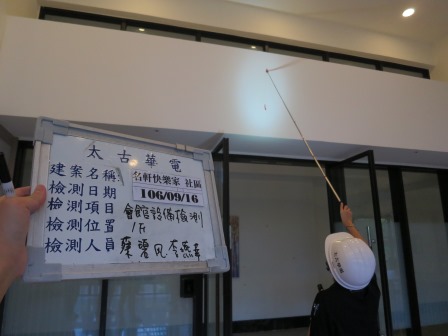 太古華電
建案名稱: 名軒快樂家 社區
檢測日期 106/09/16
檢測項目 會館設備檢測
檢測位置 1F
檢測人員 蔡